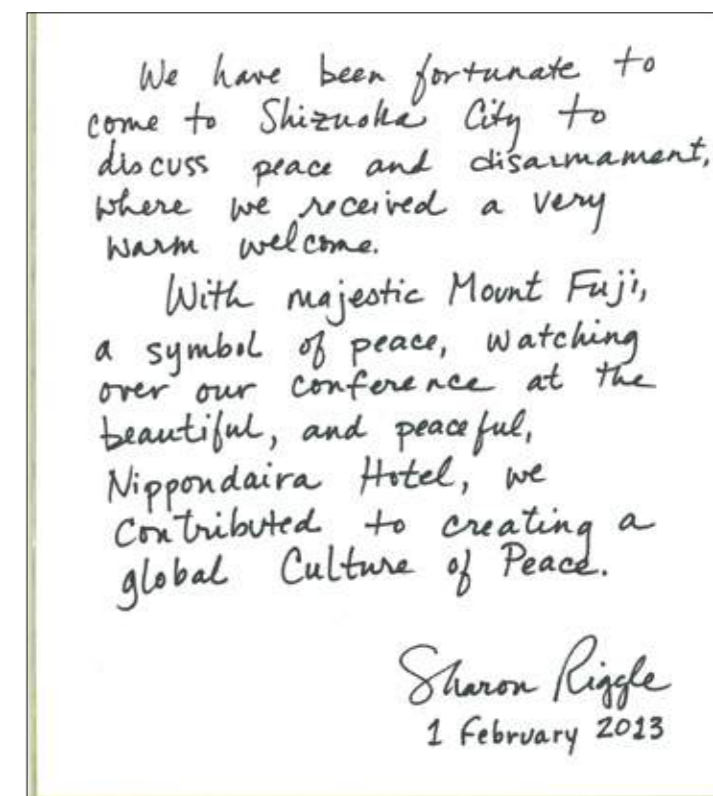 We have been fortunate to
come to Shizuoka City to
discuss peace and disarmament,
where we received a very
warm welcome.
With majestic Mount Fuji,
a symbol of peace, watching
over our conference at the
beautiful, and peaceful,
Nippondaira Hotel, we
contributed to creating a
global Culture of Peace.
Sharon Riggle
1 February 2013